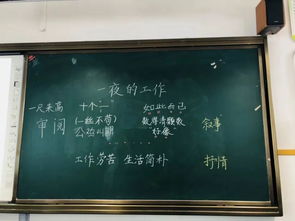 一夜的工作
一尺来高 十个"一" 如此而已
审阅 (一丝不苟) 数得清颗数 叙事
"好像"
工作劳苦 生活简朴 抒情